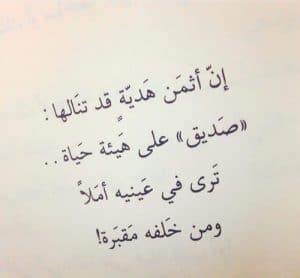 إنّ أثمَن هَديّةٍ قد تنَالها :
«صَديق» على هَيئة حَياة..
تَرى في عَينيه أمَلاً
ومن خَلفه مَقبَرة!